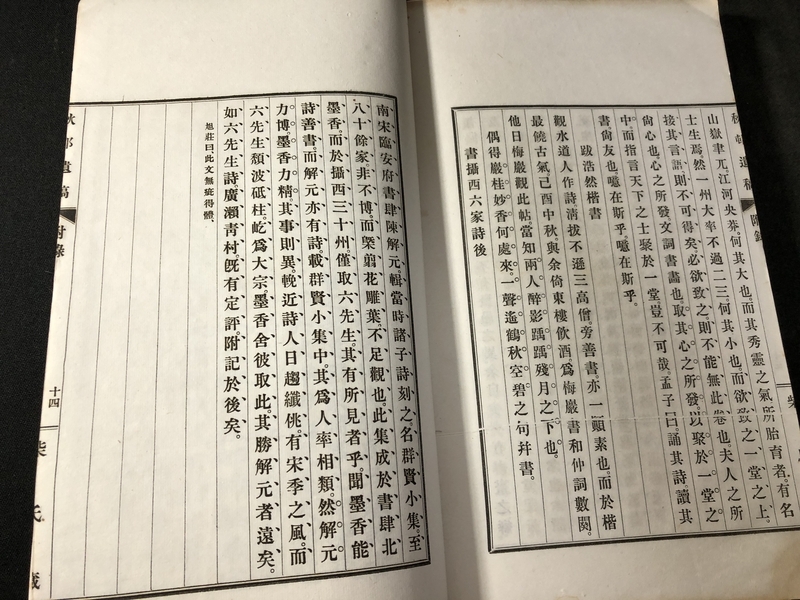 山嶽聿兀江河央莽。何其大也。而其秀靈之氣所胎育者。有名
士生焉。然一州大率不過二三。何其小也。而欲致之一堂之上。
接其言語則不可得矣。必欲致之。則不能無此卷也。夫人之所
尙心也。心之所發文詞書畫也。取其心之所發以聚於一堂之
中。而指言天下之士聚於一堂豈不可哉。孟子曰。誦其詩。讀其
書尙友也。噫在斯乎。噫在斯乎。
跋浩然楷書
觀水道人作詩淸拔不遜三高僧。旁善書。亦一顚素也。而於楷
最饒古氣。己酉中秋與余倚東樓飮酒。爲悔巖書和仲詞數闋。
他日悔巖觀此帖。當知兩人醉影踽踽殘月之下也。
偶得巖桂妙香何處來。一聲遙鶴秋空碧之句。幷書。
書攝西六家詩後
南宋臨安府書肆陳解元。輯當時諸子詩刻之。名群賢小集。至
八十餘家。非不博。而槩剪花雕葉。不足觀也。此集成於書肆北
墨香。而於攝西三十州。僅取六先生。其有所見者乎。聞墨香能
詩善書。而解元亦有詩載群賢小集中。其爲人率相類。然解元
力博。墨香力精。其事則異。輓近詩人日趨纖佻。有宋季之風。而
六先生頽波砥柱。屹爲大宗。墨香舍彼取此。其勝解元者遠矣。
如六先生詩。廣瀨靑村旣有定評。附記於後矣。
旭莊曰。此文無疵得體。
遺稿
附錄
十四
柴氏藏